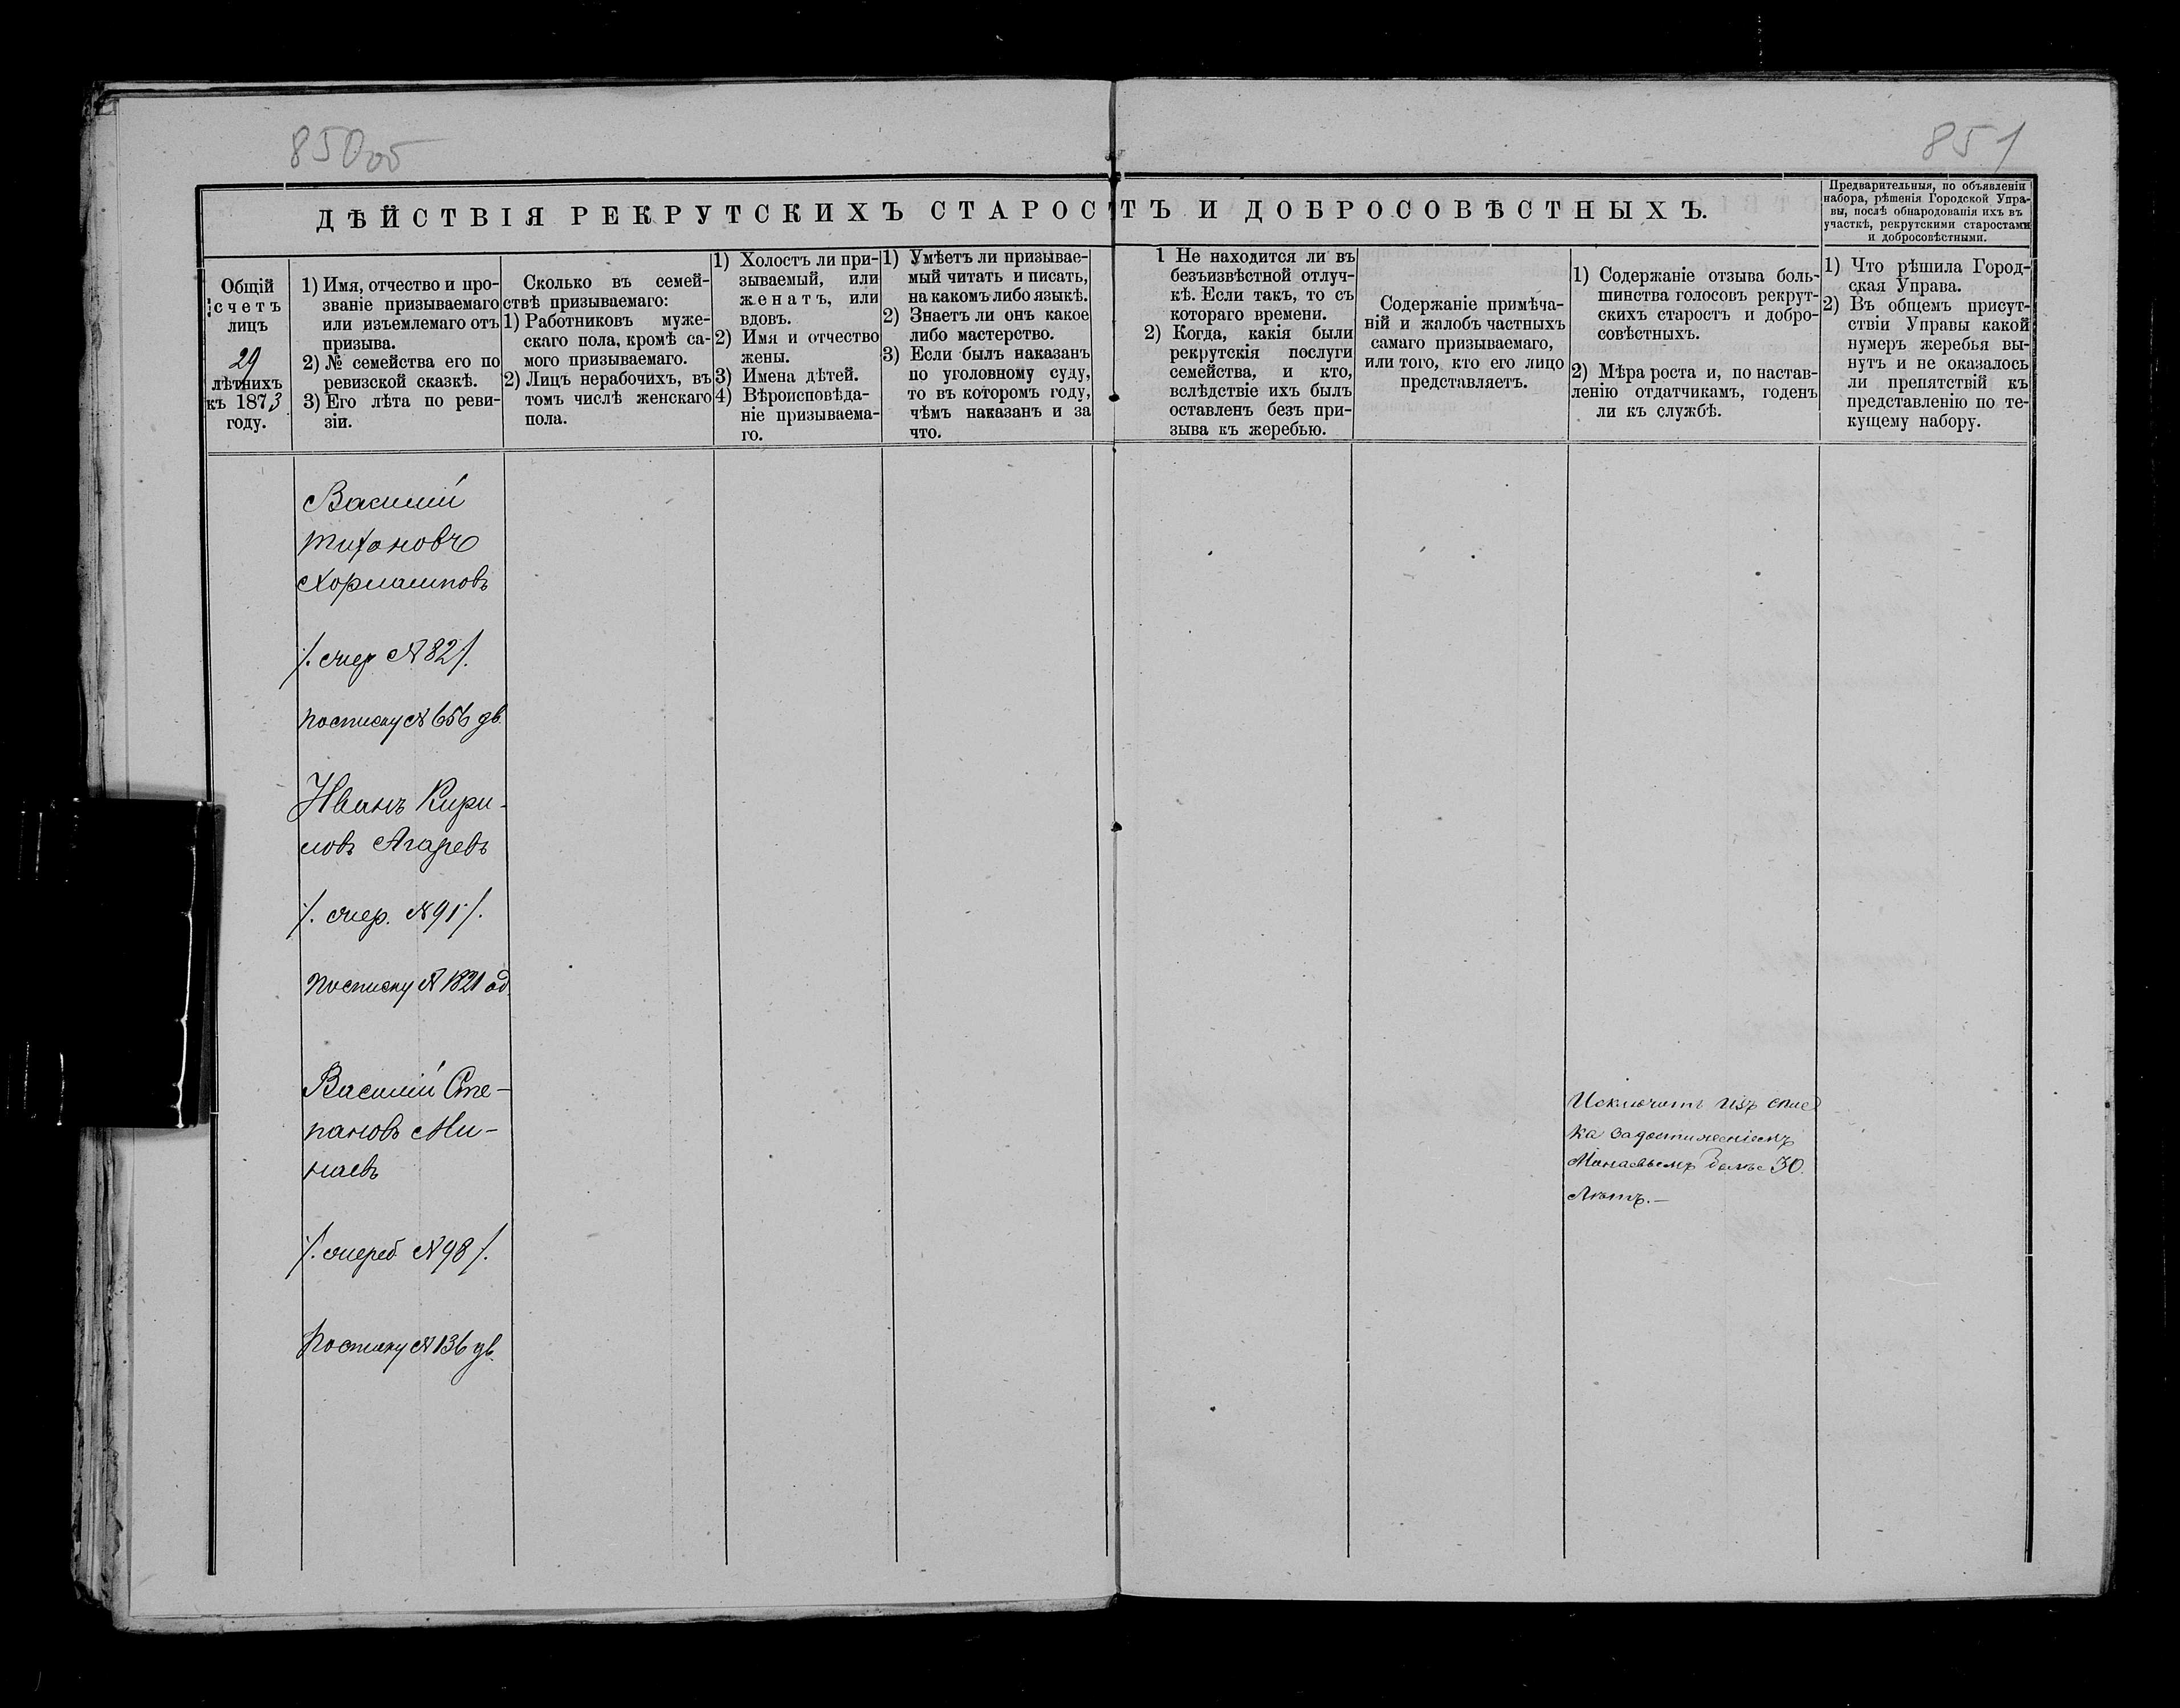 850об
851
ДѢЙСТВІЯ РЕКРУТСКИХЪ СТАРОСТЪ И ДОБРОСОВѢСТНЫХЪ.
Предварительныя, по объявленіи
набора, рѣшенія Городской Упра-
вы, послѣ обнародованія ихъ въ
участкѣ, рекрутскими старостами
и добросовѣстными.
Общій
счетъ
лицъ
29
лѣтнихъ
къ 1873
году.
1) Имя, отчество и про-
званіе призываемаго
или изъемлемаго отъ
призыва.
2) № семейства его по
ревизской сказкѣ.
3) Его лѣта по реви-
зіи.
Сколько въ семей-
ствѣ призываемаго:
1) Работниковъ муже-
скаго пола, кромѣ са-
мого призываемаго.
2) Лицъ нерабочихъ, въ
томъ числѣ женскаго
пола.
1) Холостъ ли при-
зываемый, или
женатъ, или
вдовъ.
2) Имя и отчество
жены.
3) Имена дѣтей.
4) Вѣроисповѣда-
ніе призываема-
го.
1) Умѣетъ ли призывае-
мый читать и писать,
на какомъ либо языкѣ.
2) Знаетъ ли онъ какое
либо мастерство.
3) Если былъ наказанъ
по уголовному суду,
то въ которомъ году,
чѣмъ наказанъ и за
что.
1 Не находится ли въ
безъизвѣстной отлуч-
кѣ. Если такъ, то съ
котораго времени.
2) Когда, какія были
рекрутскія послуги
семейства, и кто,
вслѣдствіе ихъ былъ
оставленъ безъ при-
зыва къ жеребью.
Содержаніе примѣча-
ній и жалобъ частныхъ
самаго призываемаго,
или того, кто его лицо
представляетъ.
1) Содержаніе отзыва боль-
шинства голосовъ рекрут-
скихъ старостъ и добро-
совѣстныхъ.
2) Мѣра роста и, по настав-
ленію отдатчикамъ, годенъ
ли къ службѣ.
1) Что рѣшила Город-
ская Управа.
2) Въ общемъ присут-
ствіи Управы какой
нумеръ жеребья вы-
нутъ и не оказалось
ли препятствій къ
представленію по те-
кущему набору.
Василій
Тихоновъ
/. очер № 82 /.
посписку № 656 дв.
Иванъ Кири-
ловъ Агаревъ
/. очер. № 91 /.
посписку № 1821 од.
Василій Сте-
пановъ Ми-
наевъ
/. очеред № 98 /.
посписку № 136 дв.
Исключить изъ спис
ка задостиженіемъ
Минаевымъ болѣе 30.
Лѣтъ.—